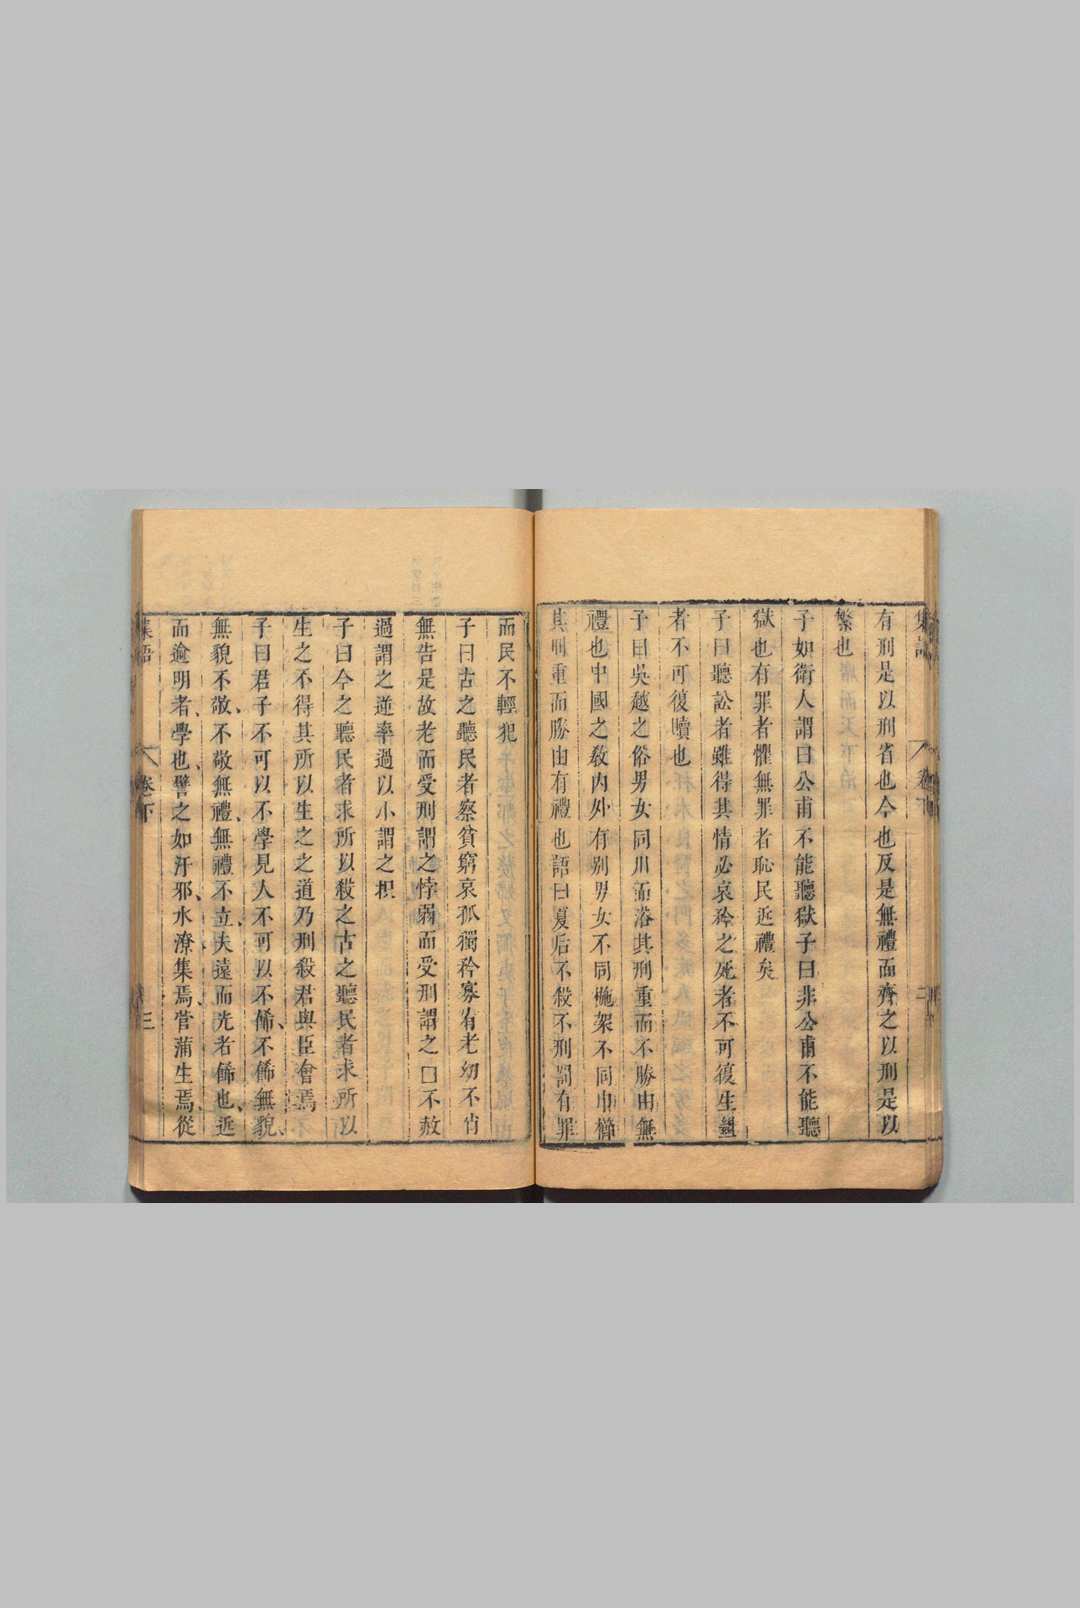 集語
卷下
二
有刑是以刑省也今也反是無禮而齊之以刑是以
繁也
子如衛人謂曰公甫不能聽獄子曰非公甫不能聽
獄也有罪者懼無罪者恥民近禮矣
子曰聽訟者雖得其情必哀矜之死者不可復生
者不可復贖也
子曰吳越之俗男女同川而浴其刑重而不勝由無
禮也中國之教內外有別男女不同椸架不同巾櫛
其刑重而勝由有禮也語曰夏后不殺不刑罰有罪
而民不輕犯
子曰古之聽民者察貧窮哀孤獨矜寡宥老幼不肖
無告是故老而受刑謂之悖弱而受刑謂之□不赦
過謂之逆率過以小謂之枳
子曰今之聽民者求所以殺之古之聽民者求所以
生之不得其所以生之之道乃刑殺君與臣會焉
子曰君子不可以不學見人不可以不飾不飾無貌
無貌不敬不敬無禮無禮不立夫遠而光者飾也近
而逾明者學也譬之如汙邪水潦集焉菅蒲生焉從
集語
卷下
三